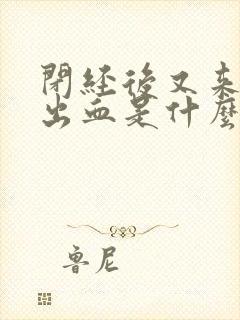 閉經後又来
出血是什麼
魯尼